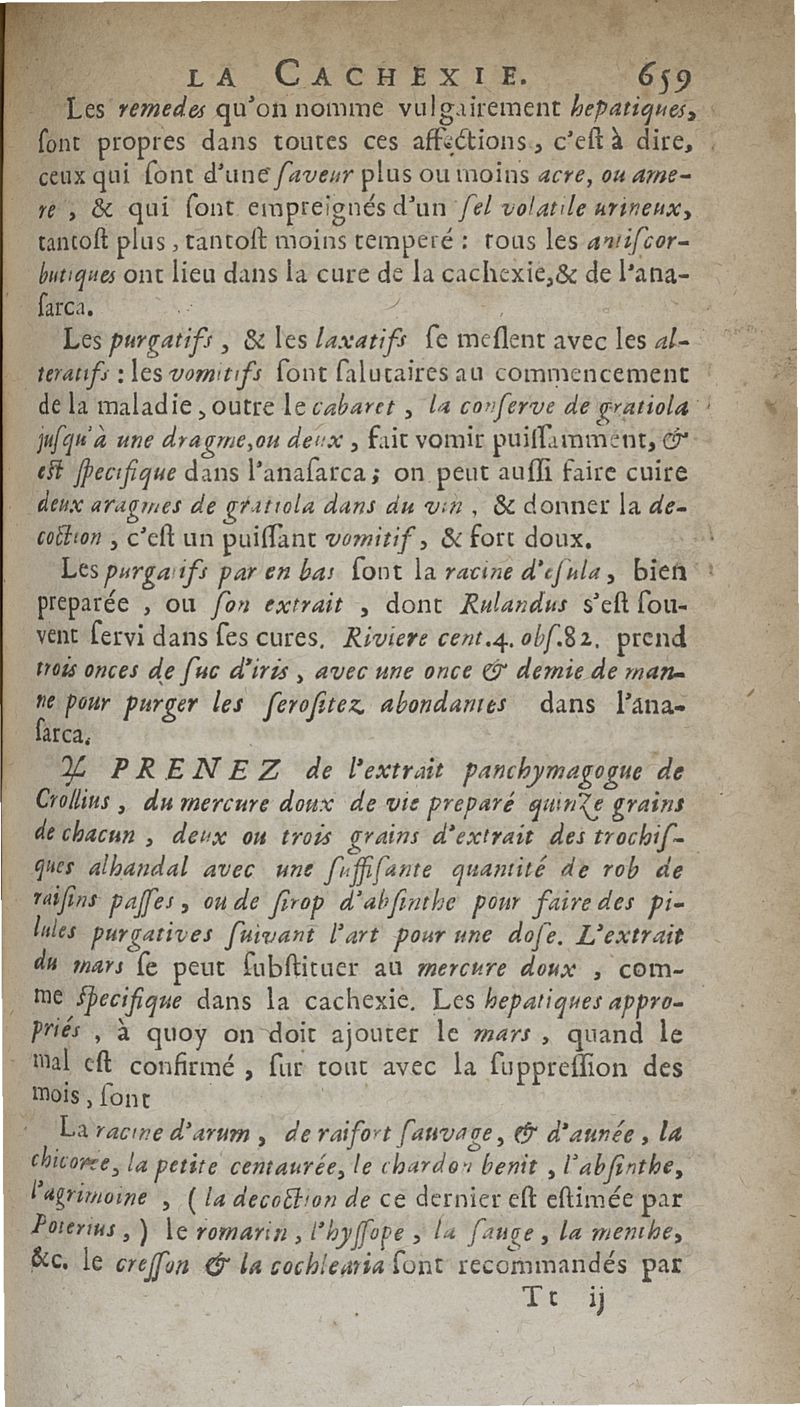 LA CACHEXIE. 659
Les remedes qu'on nomme vulgairement hepatiques,
ſont propres dans toutes ces affections, c'eſt à dire,
ceux qui ſont d'une ſaveur plus ou moins acre, ou ame-
re, & qui ſont empreignés d'un ſel volatile urineux,
tantoſt plus, tantoſt moins temperé : tous les antiſcor-
butiques ont lieu dans la cure de la cachexie, & de l'ana-
ſarca.
Les purgatifs, & les laxatifs ſe meſlent avec les al-
teratifs : les vomitifs ſont ſalutaires au commencement
de la maladie, outre le cabaret, la conſerve de gratiola
juſqu'à une dragme, ou deux, fait vomir puiſſamment, &
eſt ſpecifique dans l'anaſarca; on peut auſſi faire cuire
deux dragmes de gratiola dans du vin, & donner la de-
coction, c'eſt un puiſſant vomitif, & fort doux.
Les purgatifs par en bas ſont la racine d'eſula, bien
preparée, ou ſon extrait, dont Rulandus s'eſt ſou-
vent ſervi dans ſes cures. Riviere cent. 4. obſ. 82. prend
trois onces de ſuc d'iris, avec une once & demie de man-
ne pour purger les ſeroſitez abondantes dans l'ana-
ſarca.
♃ PRENEZ de l'extrait panchymagogue de
Crollius, du mercure doux de vie preparé quinze grains
de chacun, deux ou trois grains d'extrait des trochiſ-
ques alhandal avec une ſuffiſante quantité de rob de
raiſins paſſes, ou de ſirop d'abſinthe pour faire des pi-
lules purgatives ſuivant l'art pour une doſe. L'extrait
du mars ſe peut ſubſtituer au mercure doux, com-
me ſpecifique dans la cachexie. Les hepatiques appro-
priés, à quoy on doit ajouter le mars, quand le
mal eſt confirmé, ſur tout avec la ſuppreſſion des
mois, ſont
La racine d'arum, de raifort ſauvage, & d'aunée, la
chicorée, la petite centaurée, le chardon benit, l'abſinthe,
l'agrimoine, (la decoction de ce dernier eſt eſtimée par
Poterius,) le romarin, l'hyſſope, la ſauge, la menthe,
&c. le creſſon & la cochlearia ſont recommandés par
Tt ij